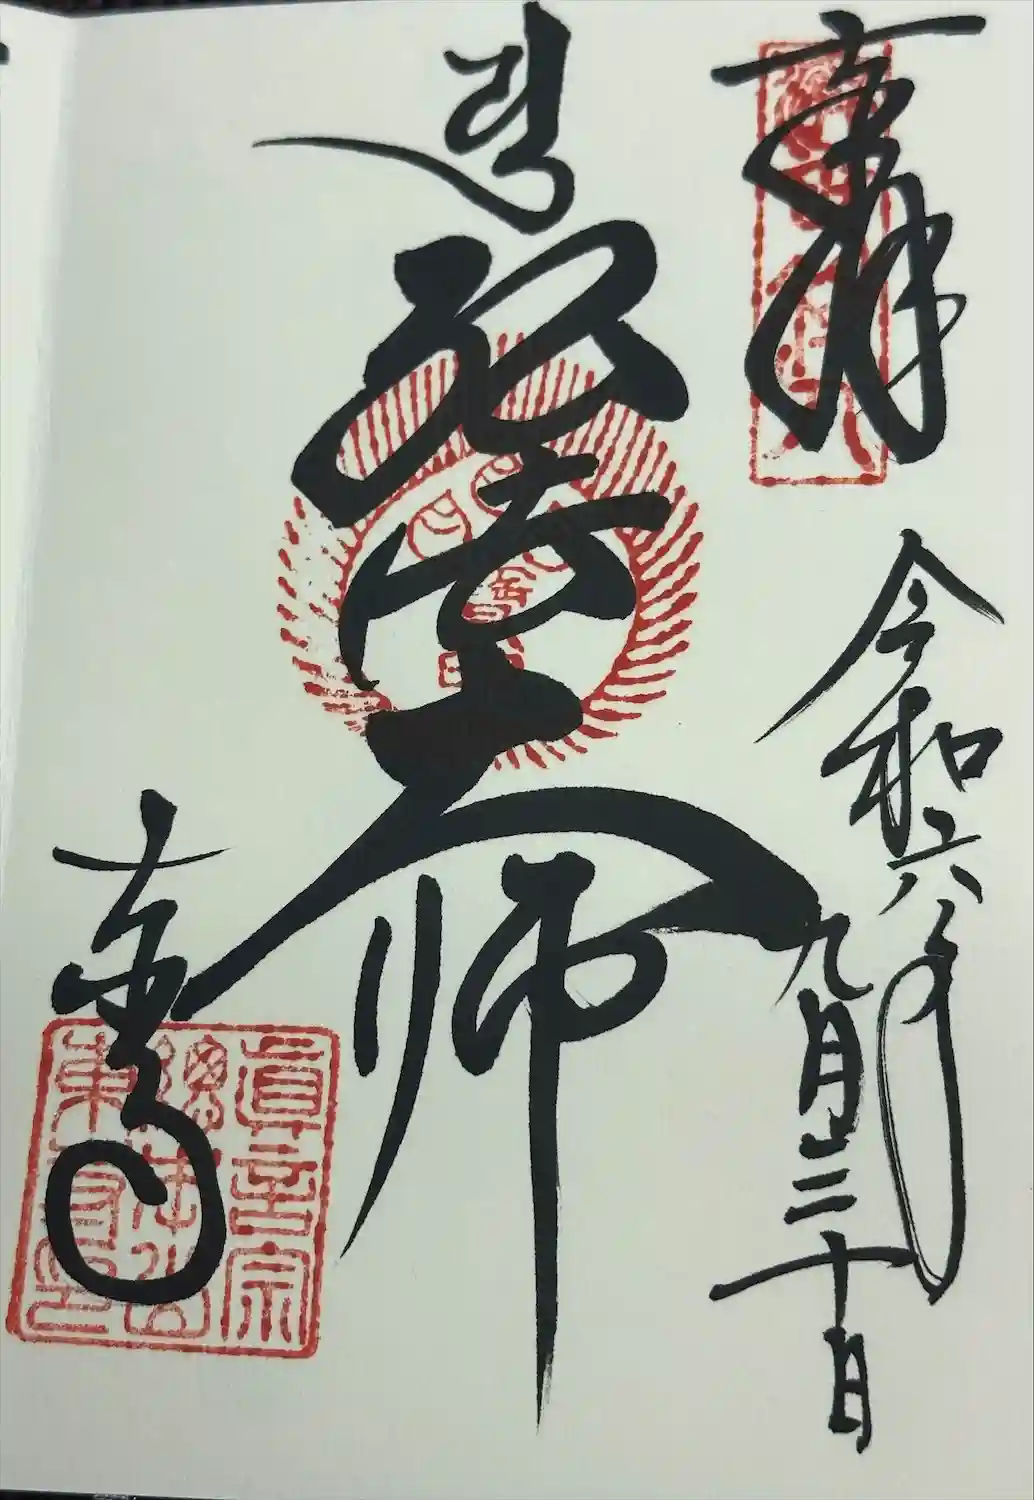 奉拝
令和六年
九月三十日
弘法大師
東寺
眞言宗
總本山
東寺印